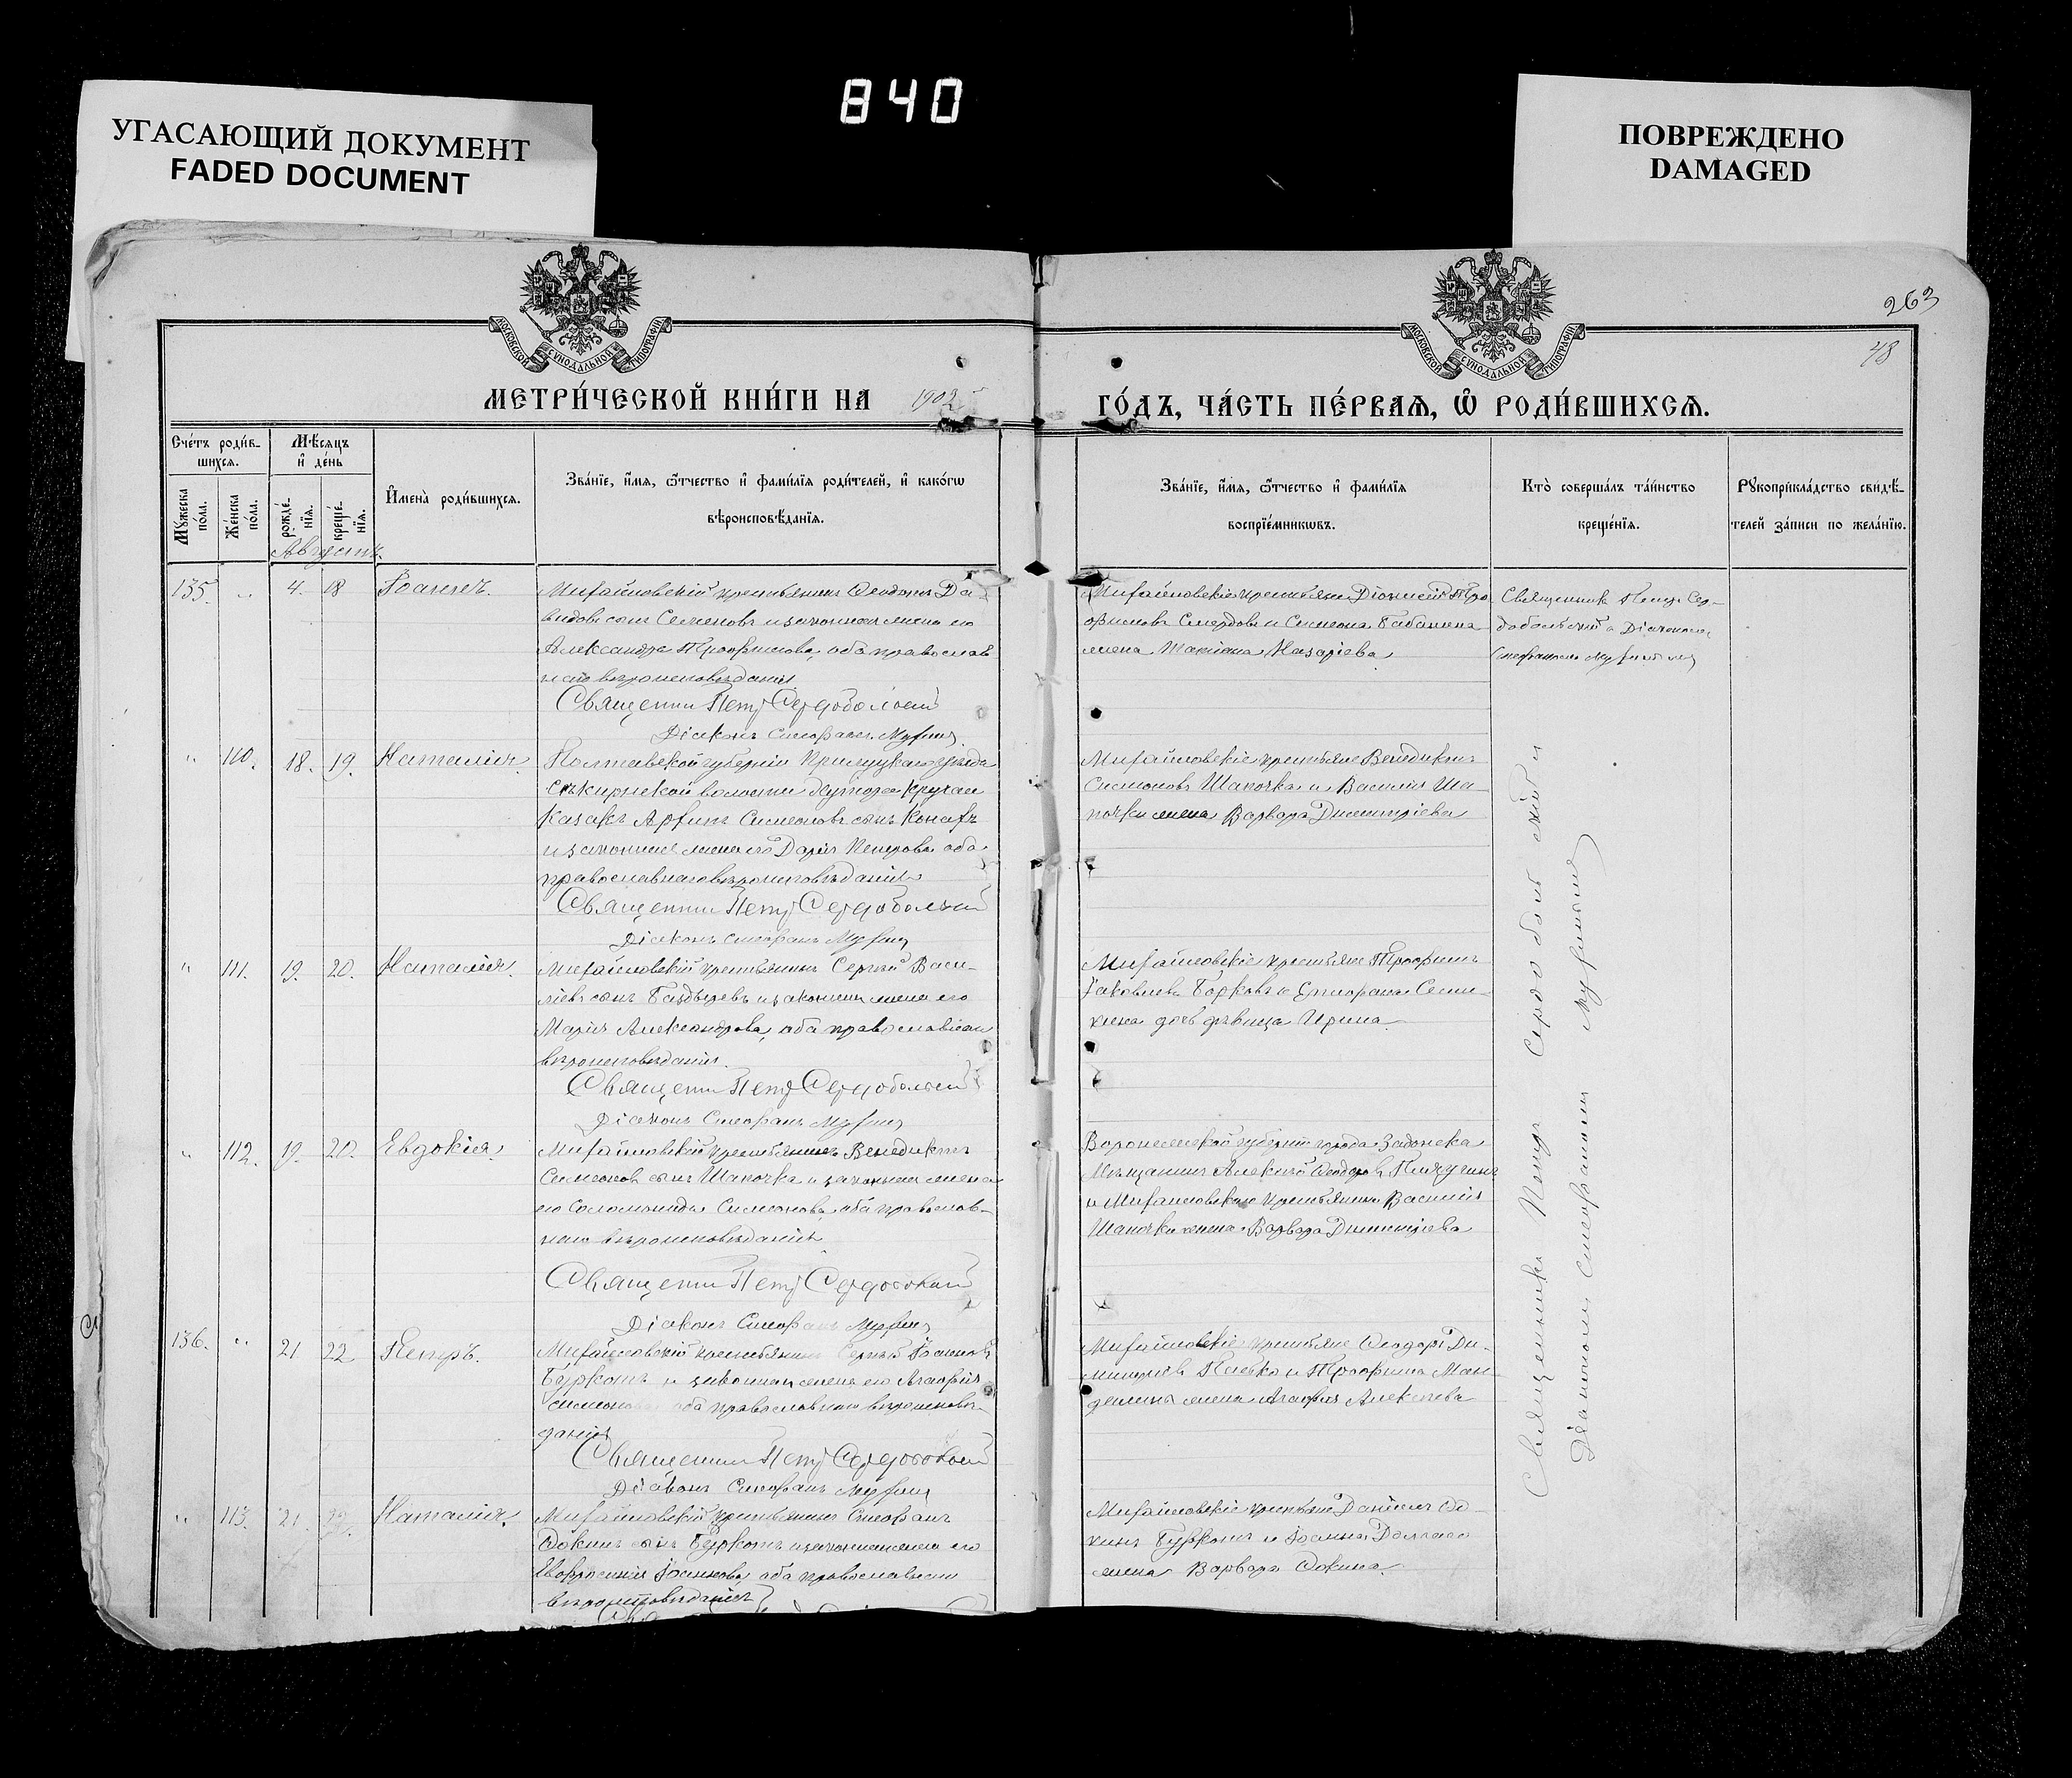 840
УГАСАЮЩИЙ ДОКУМЕНТ
FADED DOCUMENT
ПОВРЕЖДЕНО
DAMAGED
263
48
МОСКОВСКОЙ СУНОДАЛЬНОЙ ТИПОГРАФІИ
МОСКОВСКОЙ СУНОДАЛЬНОЙ ТИПОГРАФІИ
МЕТРИ́ЧЕСКОЙ КНИ́ГИ НА 1902 ГО́ДЪ, ЧА́СТЬ ПЕ́РВАЯ, Ѿ РОДИ́ВШИХСЯ.
Сче́тъ роди́в-
шихся.
Мѣ́сяцъ
и де́нь
Му́жеска по́ла.
Же́нска по́ла.
рожде́-нія.
креще́-нія.
Имена̀ роди́вшихся.
Зва́ніе, и́мя, ѻ́тчество и фами́лія роди́телей, и како́гѡ
вѣроисповѣ́данія.
Зва́ніе, и́мя, ѻ́тчество и фами́лія
воспріе́мникѡвъ.
Кто̀ соверша́лъ та́инство
креще́нія.
Рукоприкла́дство свидѣ́-
телей за́писи по жела́нію.
Августъ.
135. " 4. 18 Іоаннъ.
Михайловскій крестьянинъ Ѳеодотъ Да-
видовъ сынъ Семеновъ и законная жена его
Александра Трофимова, оба православ
наго вѣроисповѣданія
Священник Петр Сердобольский
Діаконъ Стефанъ Мухин
Михайловскіе крестьяне Діонисій Тро-
фимовъ Смердовъ и Симеона Бабанина
жена Татіана Назаріева.
Священникъ Петръ Сер-
добольскій с Діакономъ
Стефаномъ Мухинымъ
" 110. 18. 19. Наталия.
Полтавской губерніи Прилуцкаго уѣзда
волости хутора
казакъ Симеоновъ сынъ
и законная жена его Дарія Петрова оба
православнаго вѣроисповѣданія
Священник Петр Сердобольский
Діаконъ Стефанъ Мухин
Михайловскіе крестьяне Венедиктъ
Симеоновъ Шапочка и Василія Ша-
почки жена Варвара Димитріева
" 111. 19. 20. Наталия.
Михайловскій крестьянинъ Сергій Васи-
ліевъ сынъ и законная жена его
Марія Александрова, оба православнаго
вѣроисповѣданія.
Священник Петр Сердобольский
Діаконъ Стефанъ Мухин
Михайловскіе крестьяне Трофимъ
Іаковлевъ Борковъ и Стефана Семи-
хина дочь дѣвица Ирина.
" 112. 19. 20. Евдокія.
Михайловскій крестьянинъ Венедиктъ
Симеоновъ сынъ Шапочка и законная жена
его Соломонида Симеонова, оба православ-
наго вѣроисповѣданія
Священник Петр Сердобольский
Діаконъ Стефанъ Мухин
Воронежской губерніи города Задонска
Мѣщанинъ Алексѣй Ѳеодоровъ
и Михайловскаго крестьянина Василія
Шапочки жена Варвара Димитріева
136. " 21 22 Петръ.
Михайловскій крестьянинъ Сергій Іоанновъ
Буркотъ и законная жена его Агафія
Симеонова оба православнаго вѣроисповѣ-
данія
Священник Петр Сердобольский
Діаконъ Стефанъ Мухин
Михайловскіе крестьяне Ѳеодоръ Ди-
митріевъ и Трофима Ман-
жена Агафія Алексѣева
" 113. 21. 22. Наталия.
Михайловскій крестьянинъ Стефанъ
Фокинъ сынъ Буркотъ и законная жена его
Евфросинія Іоаннова оба православнаго
вѣроисповѣданія
Михайловскіе крестьяне Даніилъ Фо-
кинъ Буркотъ и Іоанна
жена Варвара Фокина.
Священникъ Петръ Сердобольскій и
Діакономъ Стефаномъ Мухинымъ